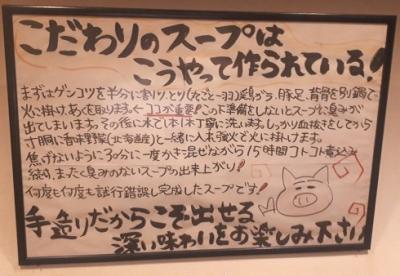 こだわりのスープは
こうやって作られている!
まずはゲンコツを半分に割り、トリ(丸ごと一羽)鶏ガラ、豚足、背骨を別鍋で
火に掛け、あくを取ります。←ココが重要!この下準備をしないとスープに臭みが
出てしまいます。その後に水で1本1本丁寧に洗います。しっかり血抜きをしてから
寸胴に香味野菜(北海道産)と一緒に入れ強火で火に掛けます。
焦げないように30分に一度かき混ぜながら15時間コトコト煮込み
続け、まったく臭みのないスープの出来上がり!
何度も何度も試行錯誤し完成したスープです!
手造りだからこそ出せる
深い味わいをお楽しみ下さい